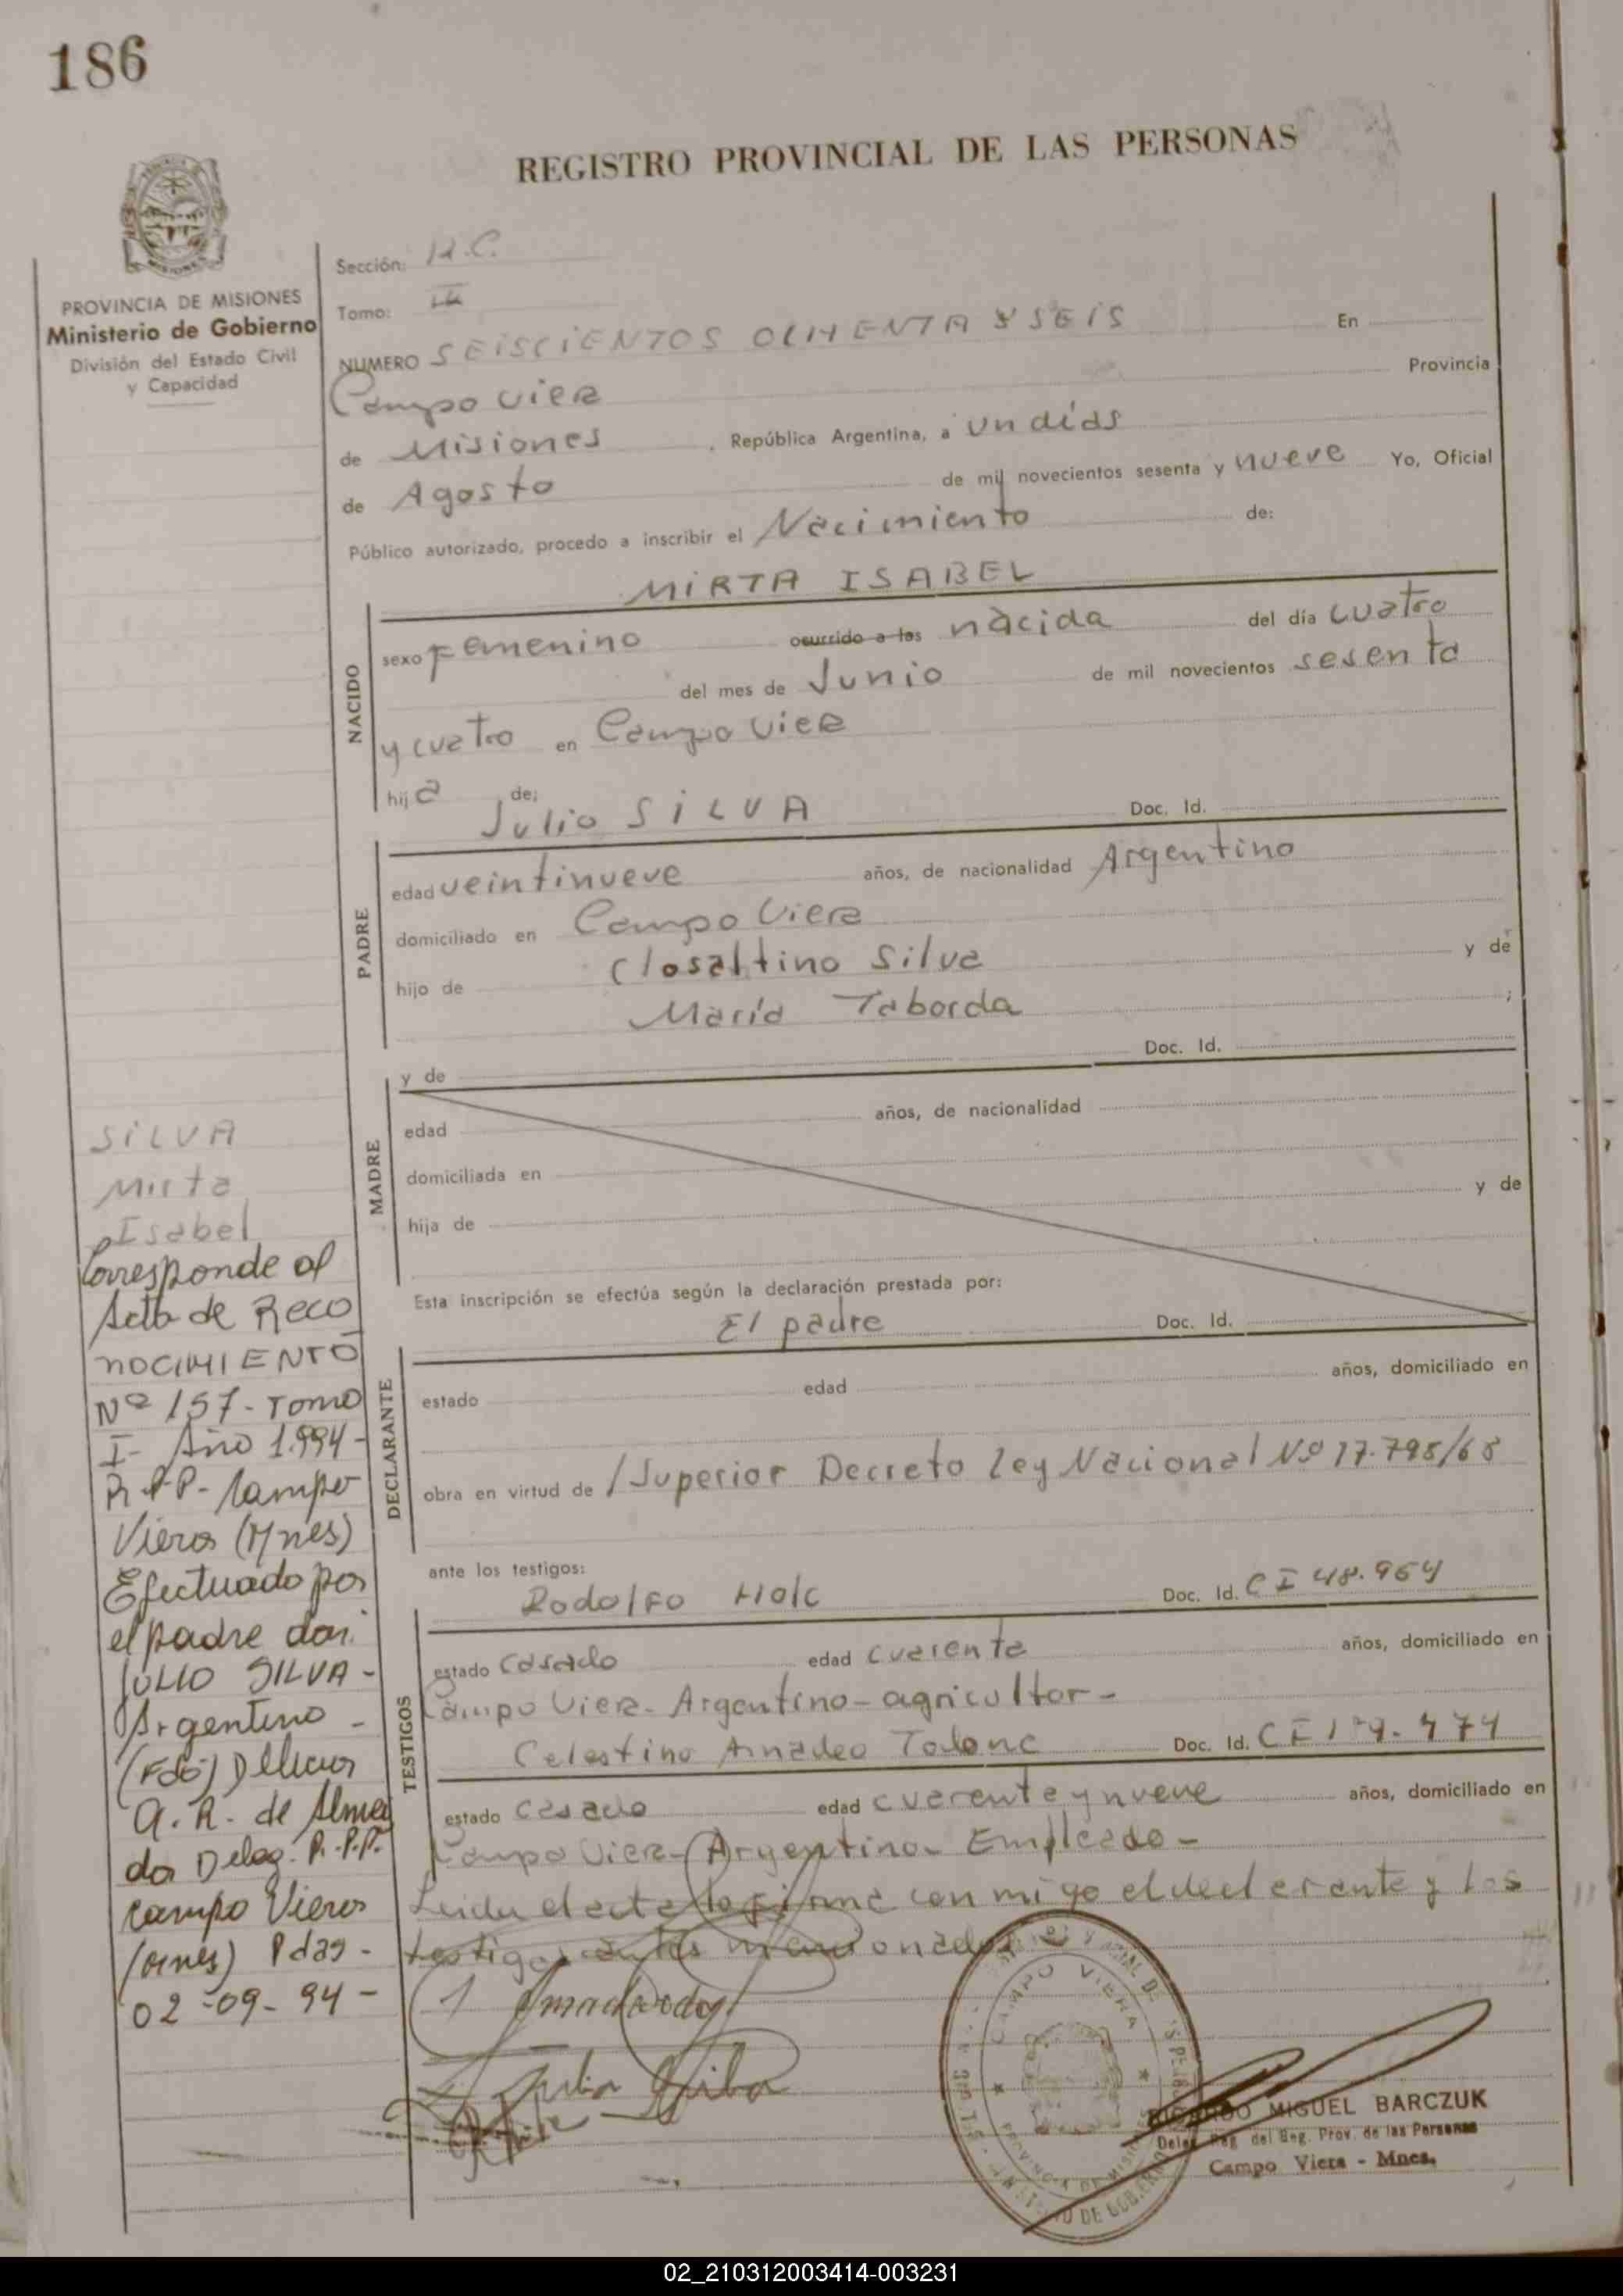 186
REGISTRO PROVINCIAL DE LAS PERSONAS
PROVINCIA DE MISIONES
Ministerio de Gobierno
División del Estado Civil
y Capacidad
Sección:
Tomo:
NUMERO SEISCIENTOS OCHENTA Y SEIS En
Campo Viera Provincia
de Misiones, República Argentina, a un días
de Agosto de mil novecientos sesenta y nueve Yo, Oficial
Público autorizado, procedo a inscribir el Nacimiento de:
MIRTA ISABEL
NACIDO
sexo Femenino ocurrido a las nacida del día cuatro
del mes de Junio de mil novecientos sesenta
y cuatro en Campo Viera
hija de: Julio SILVA Doc. Id.
PADRE
edad veintinueve años, de nacionalidad Argentino
domiciliado en Campo Viera
hijo de Closaltino Silva y de
María Taborda ;
y de Doc. Id.
MADRE
edad años, de nacionalidad
domiciliada en
hija de y de
Esta inscripción se efectúa según la declaración prestada por:
El padre Doc. Id.
DECLARANTE
estado edad años, domiciliado en
obra en virtud de /Superior Decreto Ley Nacional Nº 17.798/68
ante los testigos:
Rodolfo Holc Doc. Id. CI 48.964
TESTIGOS
estado casado edad cuarenta años, domiciliado en
Campo Viera - Argentino - agricultor -
Celestino Amadeo Doc. Id.
estado casado edad cuarenta y nueve años, domiciliado en
Campo Viera - Argentino - Empleado -
Leida el acta la firma conmigo el declarante y los
testigos antes mencionados
Julio Silva
SILVA
Mirta
Isabel
Corresponde al
Acta de Reco
NOCIMIENTO
Nº 157 - Tomo
I - Año 1.994 -
R.P.P - Campo
Viera (Mnes)
Efectuado por
el padre don:
JULIO SILVA -
Argentino -
(Fdo)
A. R. de Almei
da Deleg. R.P.P.
Campo Viera
(Mnes) Pdas -
02 - 09 - 94 -
CAMPO VIERA
PROVINCIA DE MISIONES
RICARDO MIGUEL BARCZUK
Deleg. Reg. del Reg. Prov. de las Personas
Campo Viera - Mnes.
02_210312003414-003231